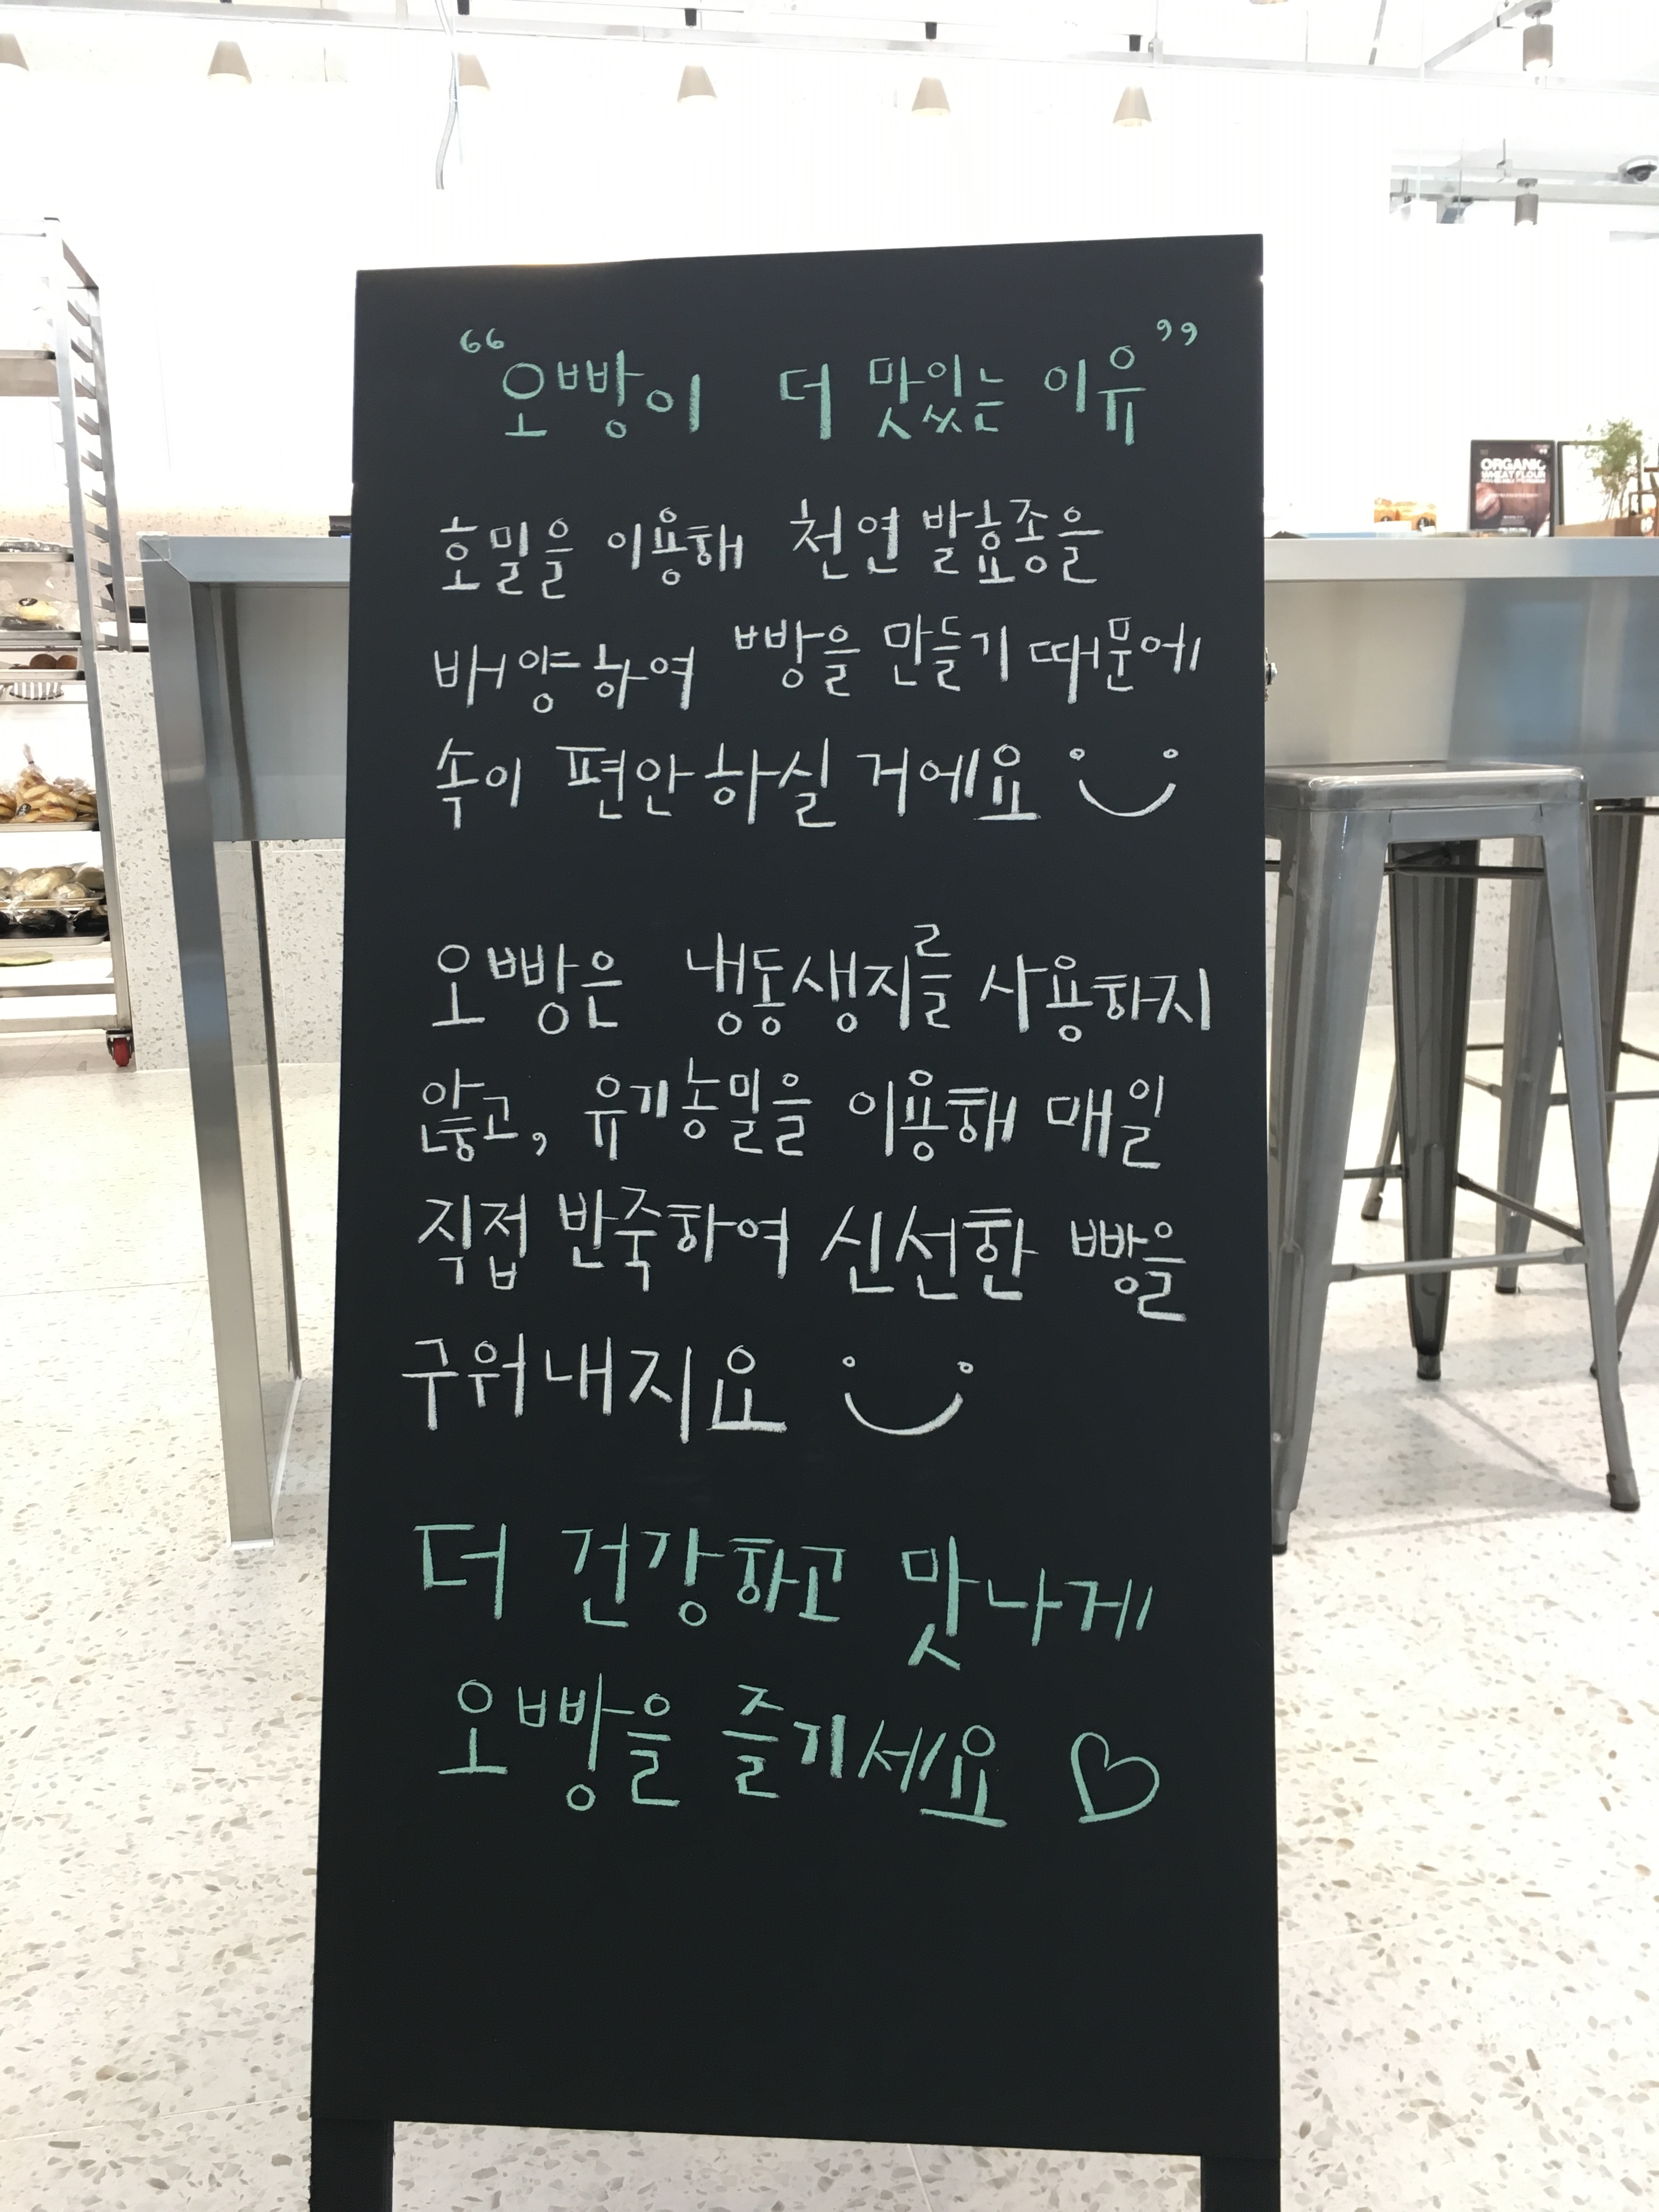 "오빵이 더 맛있는 이유"
호밀을 이용해 천연발효종을
배양하여 빵을 만들기 때문에
속이 편안하실 거에요
오빵은 냉동생지를 사용하지
않고, 유기농밀을 이용해 매일
직접 반죽하여 신선한 빵을
구워내지요
더 건강하고 맛나게
오빵을 즐기세요
ORGANIC
WHEAT FLOUR